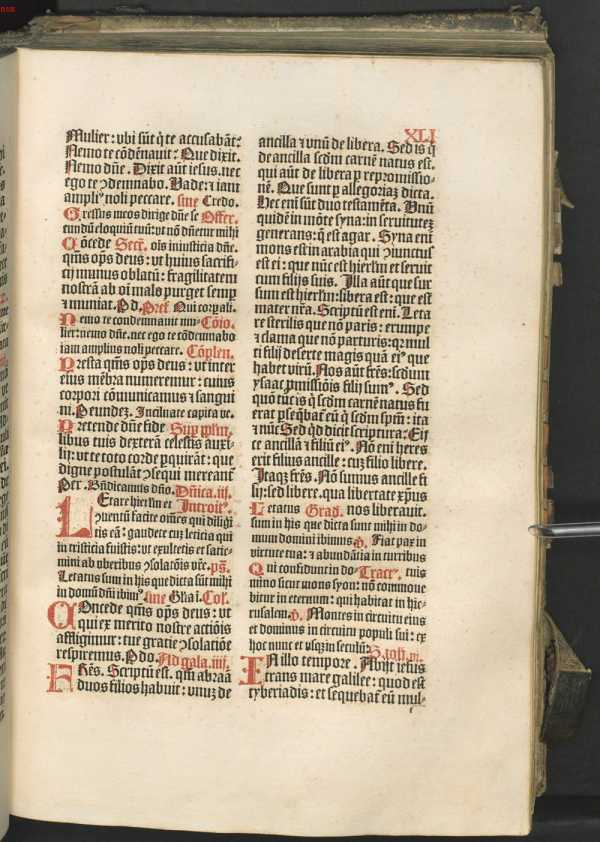 XLI
Mulier: vbi sūt q̇ te accusabāt:
Nemo te cōdēnauit: Que dixit.
Nemo dn̄e. Dixit aūt iesus. nec
ego te ꝯdemnabo. Vade: ⁊ iam
ampliꝰ noli peccare. sine Credo.
Gressus meos dirige dn̄e se Offer.
cundū eloquiū tuū: vt nō dn̄etur mihi
Cōcede Secr̄. oīs iniusticia dn̄e.
qm̄s op̄s deus: vt huius sacrifi⸗
cij munus oblatū: fragilitatem
nostrā ab oī malo purget semp̲
⁊ muniat. P̲ d. Pref. Qui corp̲ali.
Nemo te condemnauit mu⸗ Cōio.
lier: nemo dn̄e. nec ego te cōdēnabo
iam amplius noli peccare. Cōplen.
Presta qm̄s op̄s deus: vt inter
eius mēbra numeremur: cuius
corpori cōmunicamus ⁊ sangui
ni. P̲ eundeꝫ. Inclinate capita vr̄.
Pretende dn̄e fide Sup̲ pp̄lm.
libus tuis dexterā celestis auxi⸗
lij: vt te toto corde p̲quirāt: que
digne postulāt ꝯsequi mereant̄
Per. Bn̄dicamus dn̄o. Dn̄ica.iiij.
LEtare hierlm̄ et Introitꝰ.
ꝯuentū facite om̄es qui diligi
tis eā: gaudete cuꝫ leticia qui
in tristicia fuistis: vt exultetis et sacie⸗
mini ab vberibus ꝯsolatōis vr̄e. ps̄.
Letatus sum in his que dicta sūt mihi
in domū dn̄i ibimꝰ. sine Gl̄ia ī. Col̄.
COncede qm̄s op̄s deus: vt
qui ex merito nostre actiōis
affligimur: tue gracie ꝯsolatiōe
respiremus. P̲ do. Ad gala.iiij.
FRēs. Scriptū est. qm̄ abraā
duos filios habuit: vnuꝫ de
ancilla ⁊ vnū de libera. Sed is q̇
de ancilla scdm̄ carnē natus est.
qui aūt de libera p̲ repromissio⸗
nē. Que sunt p̲ allegoriaꝫ dicta.
Hec enī sūt duo testamēta. Vnū
quidē in mōte syna: in seruituteꝫ
generans: q̄ est agar. Syna enī
mons est in arabia qui ꝯiunctus
est ei: que nūc est hierlm̄ et seruit
cum filijs suis. Illa aūt que sur
sum est hierlm̄: libera est: que est
mater nr̄a. Scriptū est enī. Leta
re sterilis que nō paris: erumpe
⁊ clama que nō parturis: qꝛ mul
ti filij deserte magis quā eiꝰ que
habet virū. Nos aūt fr̄es: scdum
ysaac p̲missiōis filij sumꝰ. Sed
quō tūc is q̇ scdm̄ carnē natus fu
erat p̲seq̄bat̄ eū q̇ scdm̄ spm̄: ita
⁊ nūc Sed qd̄ dicit scriptura: Eij
ce ancillā ⁊ filiū eiꝰ. Nō enī heres
erit filius ancille: cuꝫ filio libere.
Itaqꝫ fr̄es. Nō sumus ancille fi
lij: sed libere. qua libertate xp̄us
Letatus Grad. nos liberauit.
sum in his que dicta sunt mihi in do⸗
mum domini ibimus. v̇. Fiat pax in
virtute tua: ⁊ abundātia in turribus
Qui confidunt in do⸗ Tractꝰ. tuis
mino sicut mons syon: nō commoue
bitur in eternum: qui habitat in hie⸗
rusalem. v̇. Montes in circuitu eius
et dominus in circuitu populi sui: ex
hoc nunc et vsqꝫ in seculū. S. ioh̄.vi.
IN illo tempore. Abijt iesus
trans mare galilee: quod est
tyberiadis: et sequebat̄ eū mul⸗